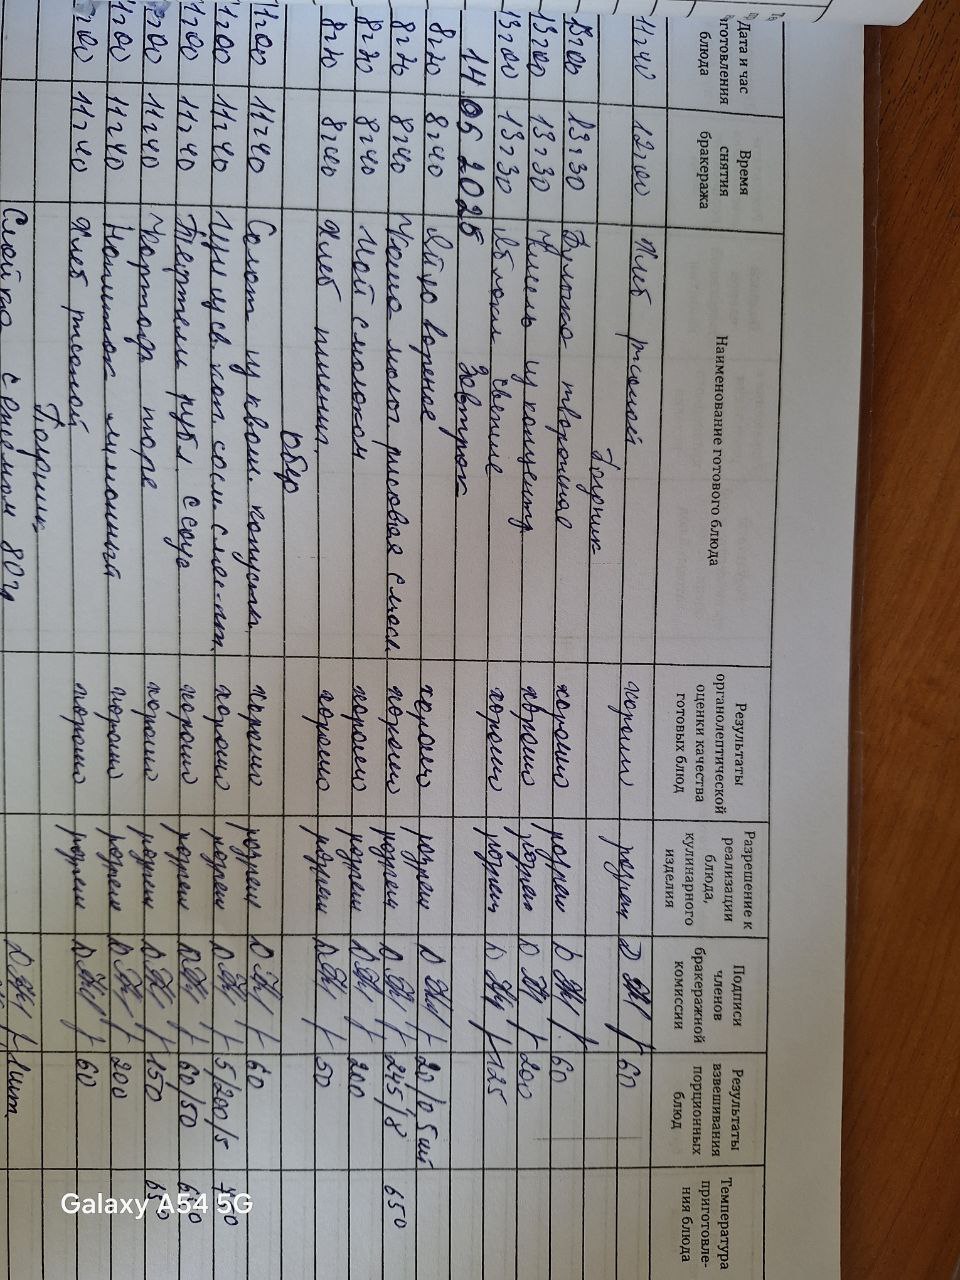 Дата и час приготовления блюда | Время снятия бракеража | Наименование готового блюда | Результаты органолептической оценки качества готовых блюд | Разрешение к реализации блюда, кулинарного изделия | Подписи членов бракеражной комиссии | Результаты взвешивания порционных блюд | Температура приготовления блюда
11 ч 40 12 ч 00 Хлеб ржаной хорошо разреш 60
Полдник
13 ч 00 13 ч 30 Булочка творожная хорошо разреш 60
13 ч 00 13 ч 30 Кисель из концентр хорошо разреш 200
13 ч 00 13 ч 30 Яблоки свежие хорошо разреш 125
14.05 2025 Завтрак
8 ч 20 8 ч 40 Яйцо вареное хорошо разреш 20/0,5 шт
8 ч 20 8 ч 40 Каша молоч рисовая с масл хорошо разреш 245/8 65°
8 ч 20 8 ч 40 Чай с молоком хорошо разреш 200
8 ч 20 8 ч 40 Хлеб пшенич. хорошо разреш 50
Обед
11 ч 00 11 ч 40 Салат из кваш. капусты хорошо разреш 60
11 ч 00 11 ч 40 Щи из св кап. со см с мяс-пт. хорошо разреш 5/200/5
11 ч 00 11 ч 40 Тефтели рубл с соус хорошо разреш 60/50
11 ч 00 11 ч 40 Картоф пюре хорошо разреш 150
11 ч 00 11 ч 40 Напиток лимонный хорошо разреш 200
11 ч 00 11 ч 40 Хлеб ржаной хорошо разреш 60
Полдник
Слойка с 80 г 1 шт.
Galaxy A54 5G